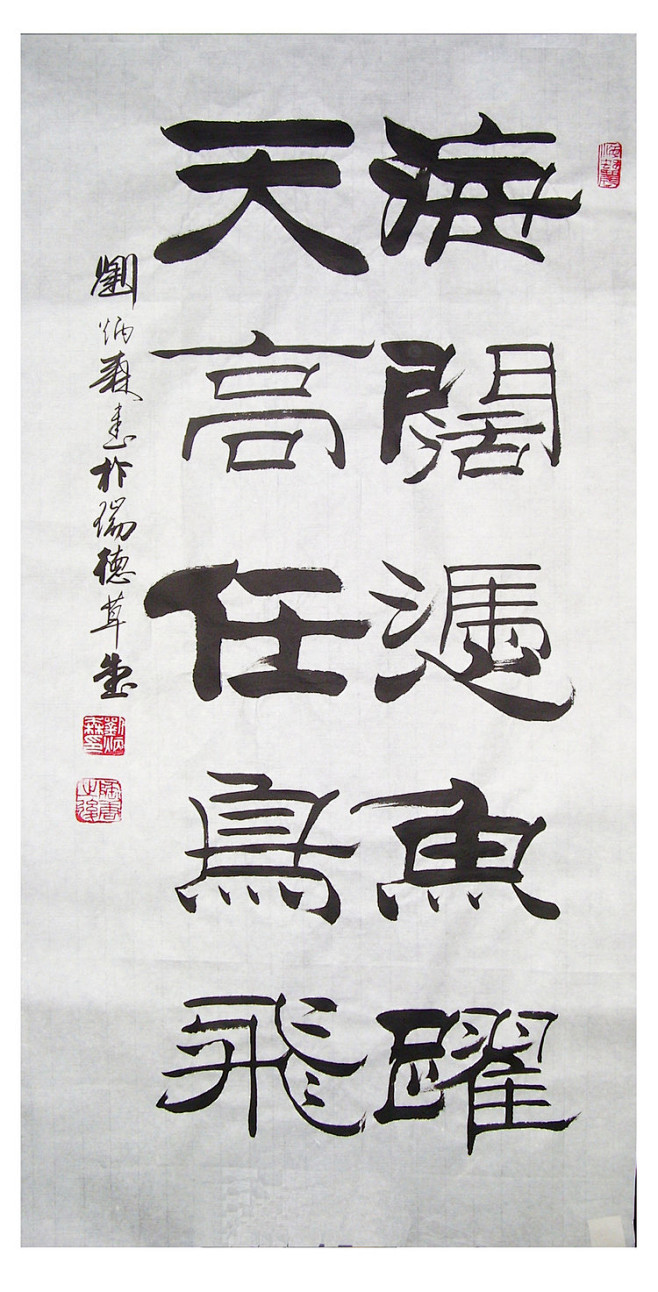 海闊憑魚躍
天高任鳥飛
劉炳森書於瑞德草堂
劉炳森印